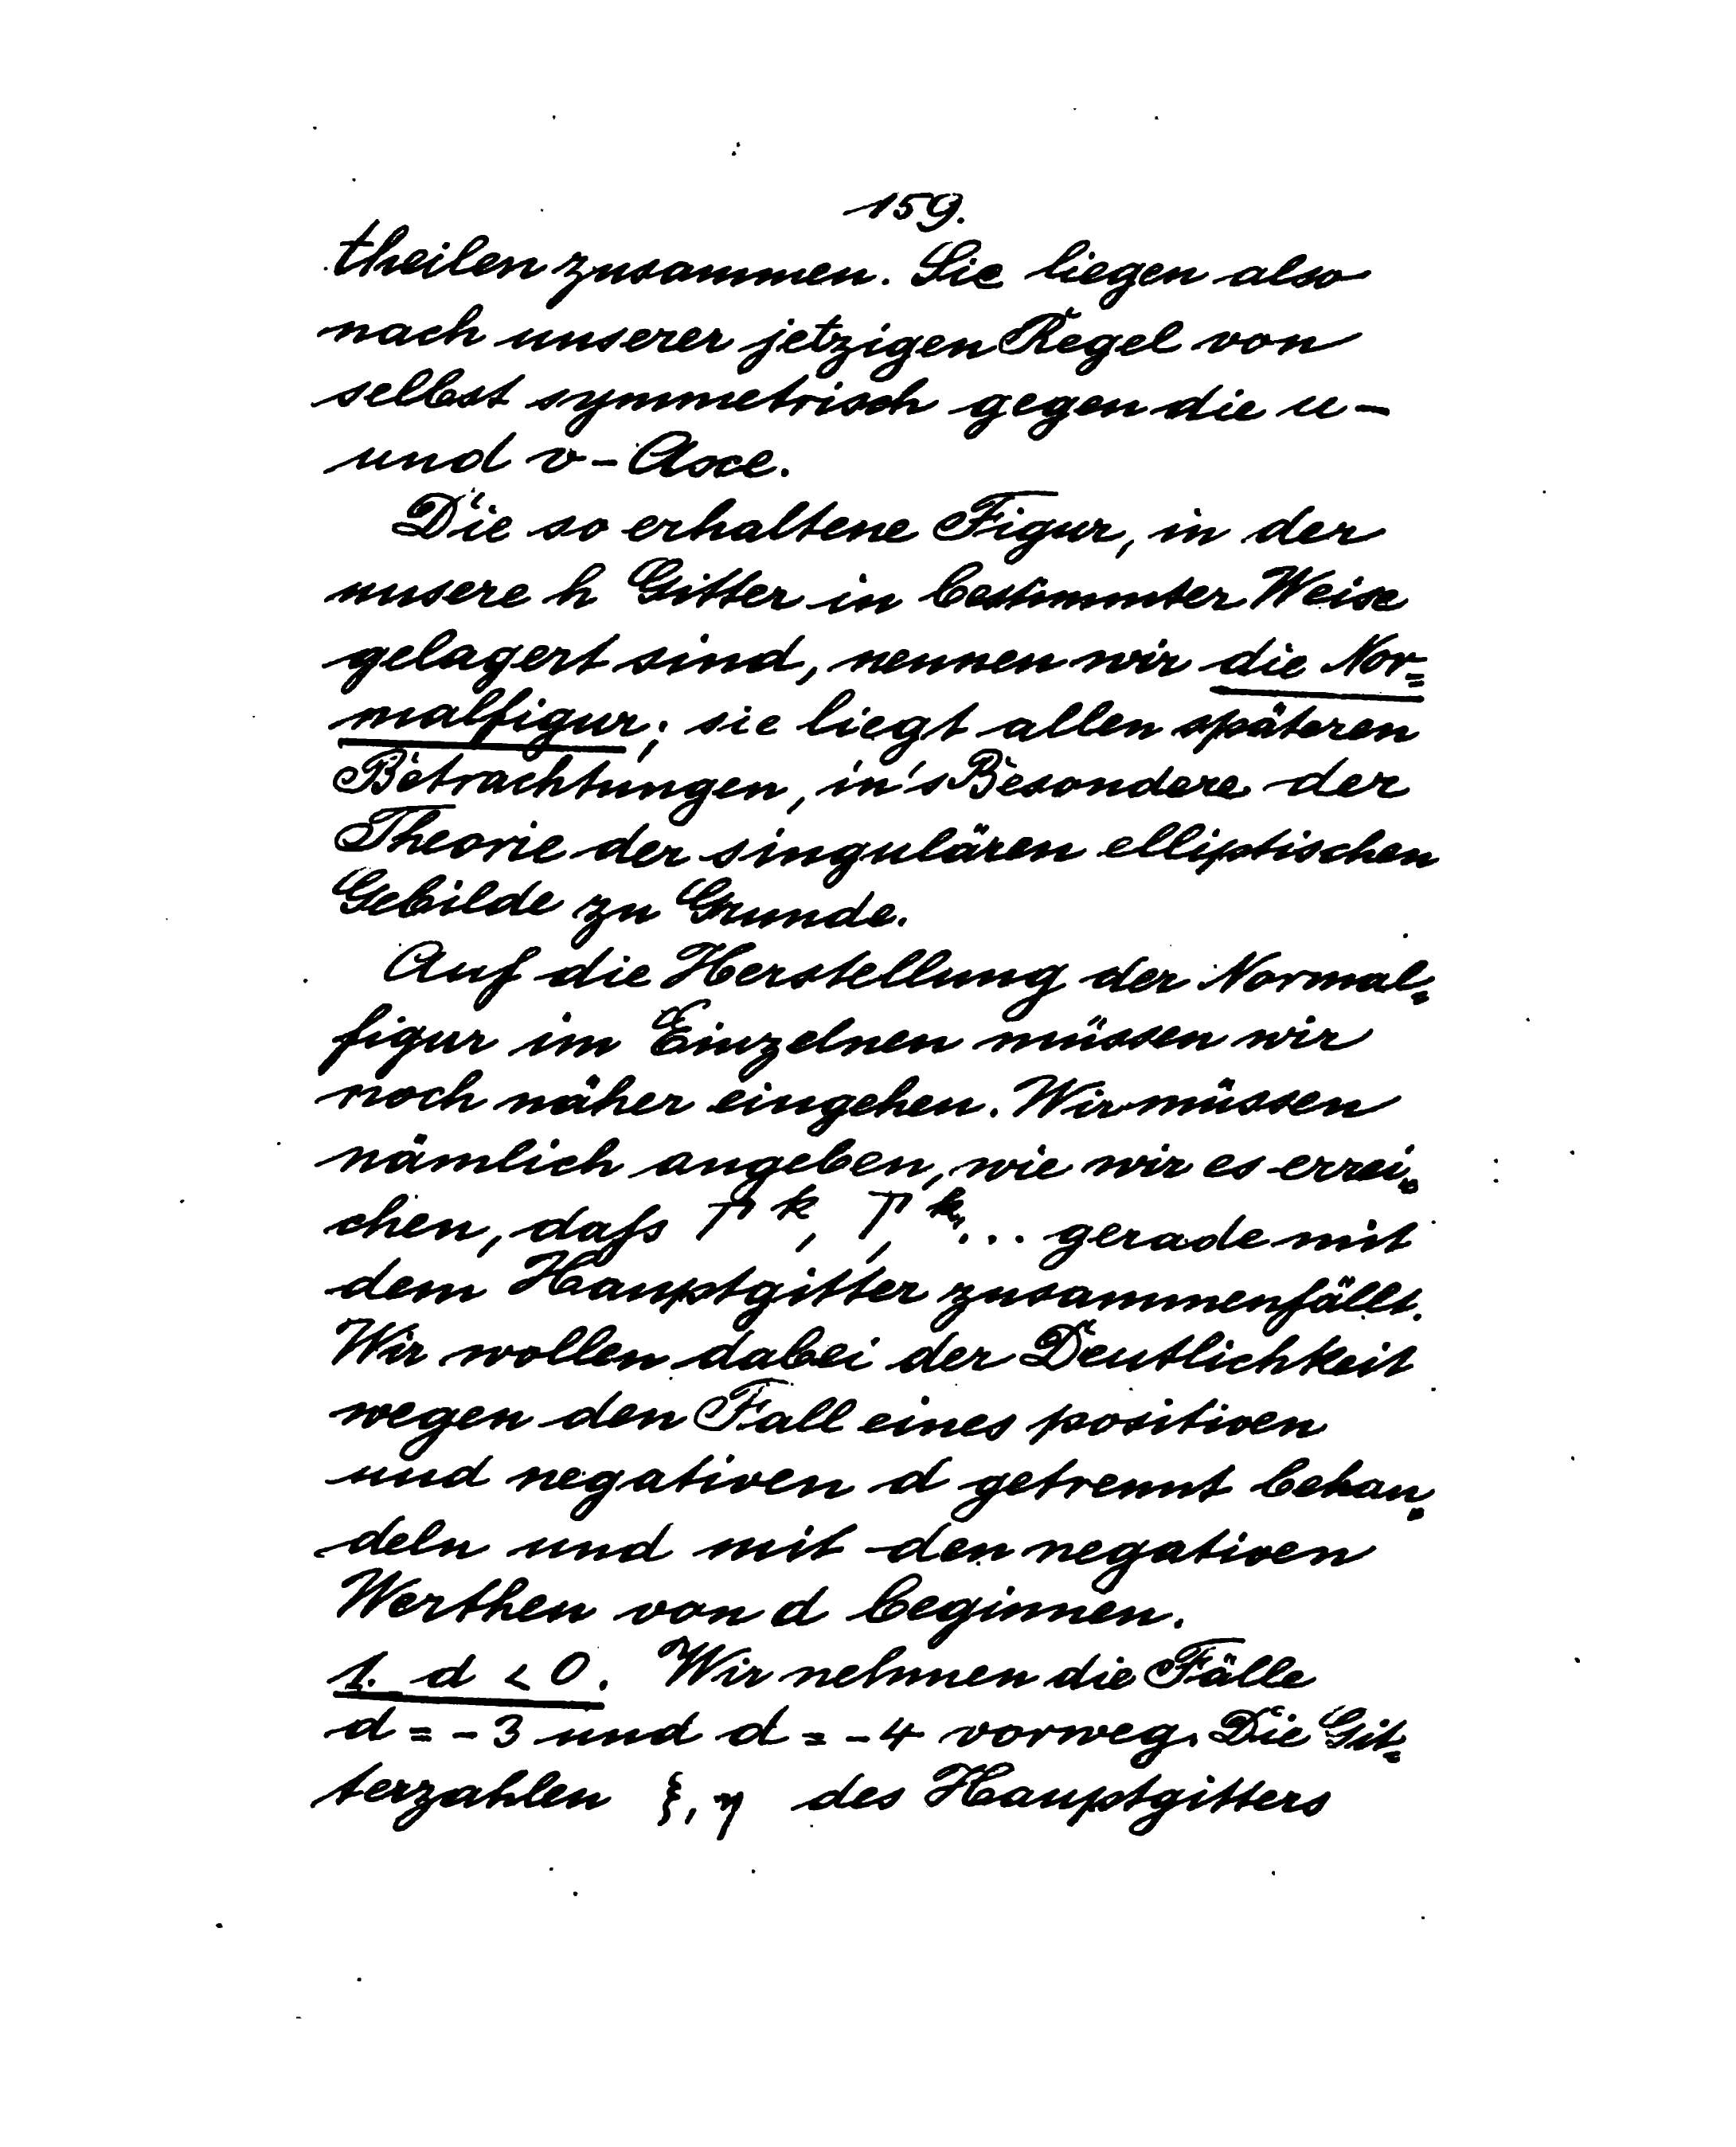 159.
theilen zusammen. Sie liegen also
nach unserer jetzigen Regel von
selbst symmetrisch gegen die u-
und v-Axe.
Die so erhaltene Figur, in der
unsere h Gitter in bestimmter Weise
gelagert sind, nennen wir die Nor=
malfigur; sie liegt allen späteren
Betrachtungen, in's Besondere der
Theorie der singulären elliptischen
Gebilde zu Grunde.
Auf die Herstellung der Normal=
figur im Einzelnen müssen wir
noch näher eingehen. Wir müssen
nämlich angeben, wie wir es errei=
chen, daſs Γ^k, Γ,^k,... gerade mit
dem Hauptgitter zusammenfällt.
Wir wollen dabei der Deutlichkeit
wegen den Fall eines positiven
und negativen d getrennt behan=
deln und mit den negativen
Werthen von d beginnen.
1. d < 0. Wir nehmen die Fälle
d = -3 und d = -4 vorweg. Die Git=
terzahlen ξ, η des Hauptgitters